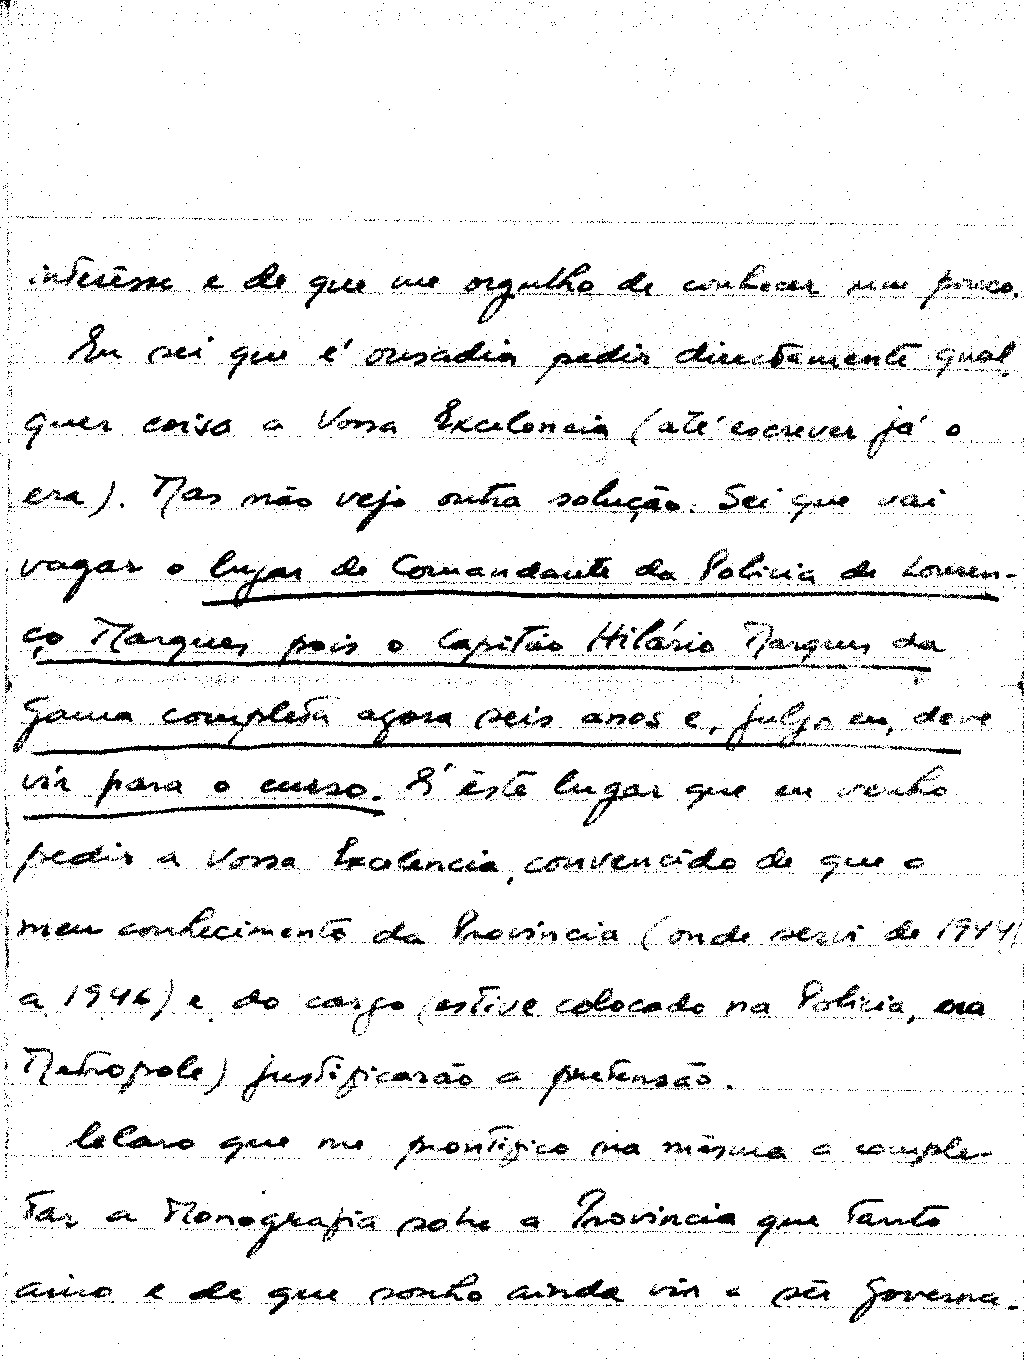 interêsse e de que me orgulho de conhecer um pouco.
Eu sei que é ousadia pedir directamente qual
quer coisa a Vossa Excelência (até escrever já o
era). Mas não vejo outra solução. Sei que vai
vagar o lugar de Comandante da Polícia de Louren-
ço Marques, pois o Capitão Hilário Marques da
Gama completa agora seis anos e, julgo eu, deve
vir para o curso. É êste lugar que eu venho
pedir a Vossa Excelência, convencido de que o
meu conhecimento da Província (onde servi de 1944
a 1946) e do cargo (estive colocado na Polícia, na
Metropole) justificarão a pretensão.
Claro que me prontifico na mesma a comple-
tar a Monografia sobre a Província que tanto
amo e de que sonho ainda vir a sêr Governa-